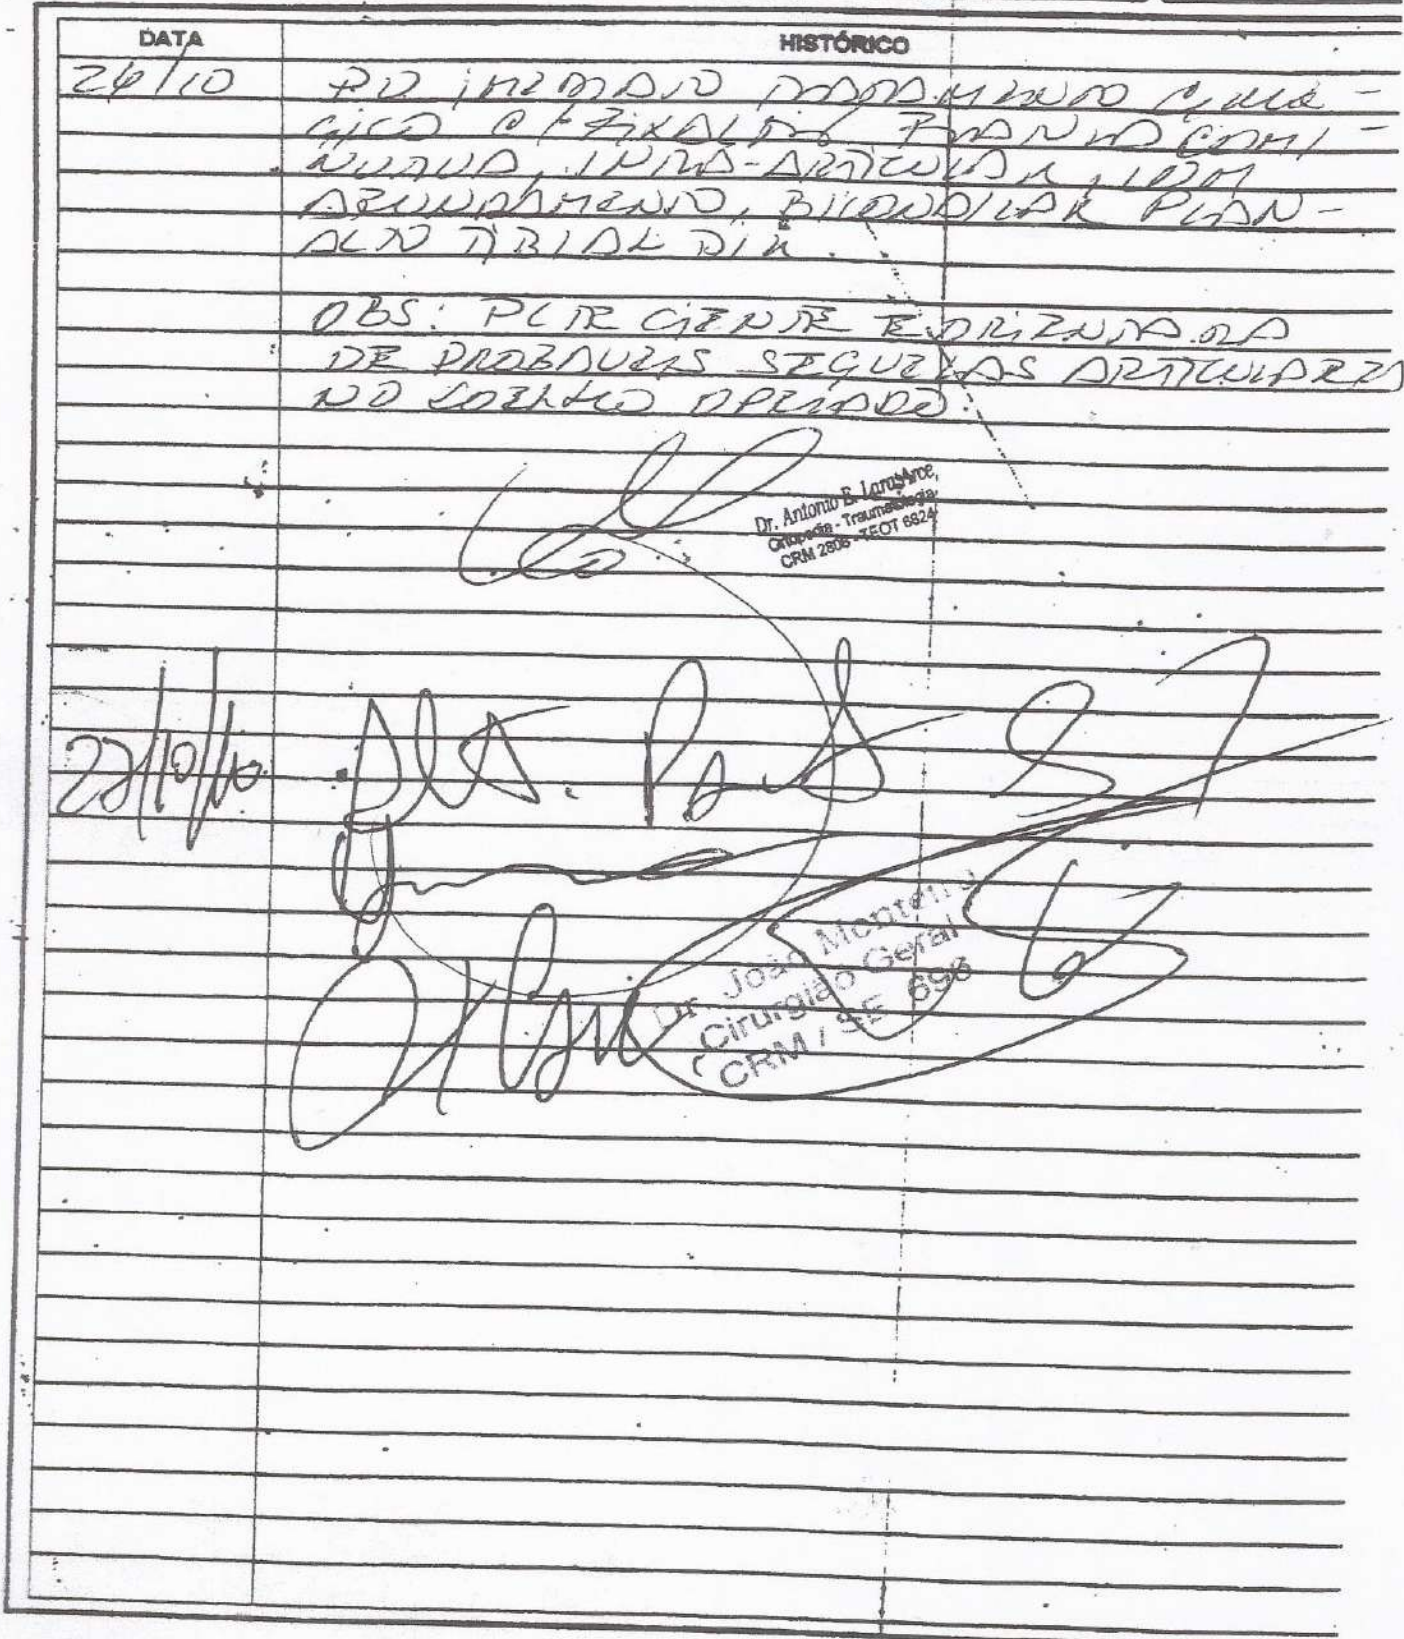 DATA HISTÓRICO
26/10 PO IMEDIATO TRATAMENTO CIRÚR-
GICO C/ FIXAÇÃO FRATURA COMI-
NUTIVA, INTRA-ARTICULAR, COM
AFUNDAMENTO, BICONDILAR PLAN-
ALTO TIBIAL DIR.
OBS: PCTE CIENTE E ORIENTADA
DE PROVÁVEIS SEQUELAS ARTICULARES
NO JOELHO OPERADO.
Dr. Antonio E. Laras Arce
Ortopedia - Traumatologia
CRM 2808 - TEOT 6824
27/10/10 Alta.
Dr João Monteiro
Cirurgião Geral
CRM / SE 696